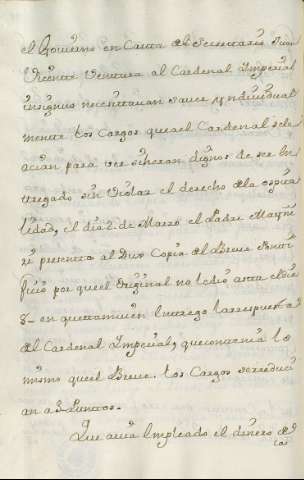 el Govierno en Carta de el Secretario Juan
Vicente Ventura al Cardenal Imperial
insignio necesitavan saver yndividual
mente los Cargos que a el Cardenal se le
acian para ver si heran dignos de ser en
tregado sin violar el derecho de la ospita
lidad, el dia 2 de Marzo el Padre
presento al Dux Copia del Breve Ponti
ficio por que el Original no le dio asta el dia
8 en que tamvien entrego la respuesta
del Cardenal Imperial, que contenia lo
mismo que el Breve. los Cargos se reduci
an a 3 Puntos.
Que avia Empleado el dinero de
las